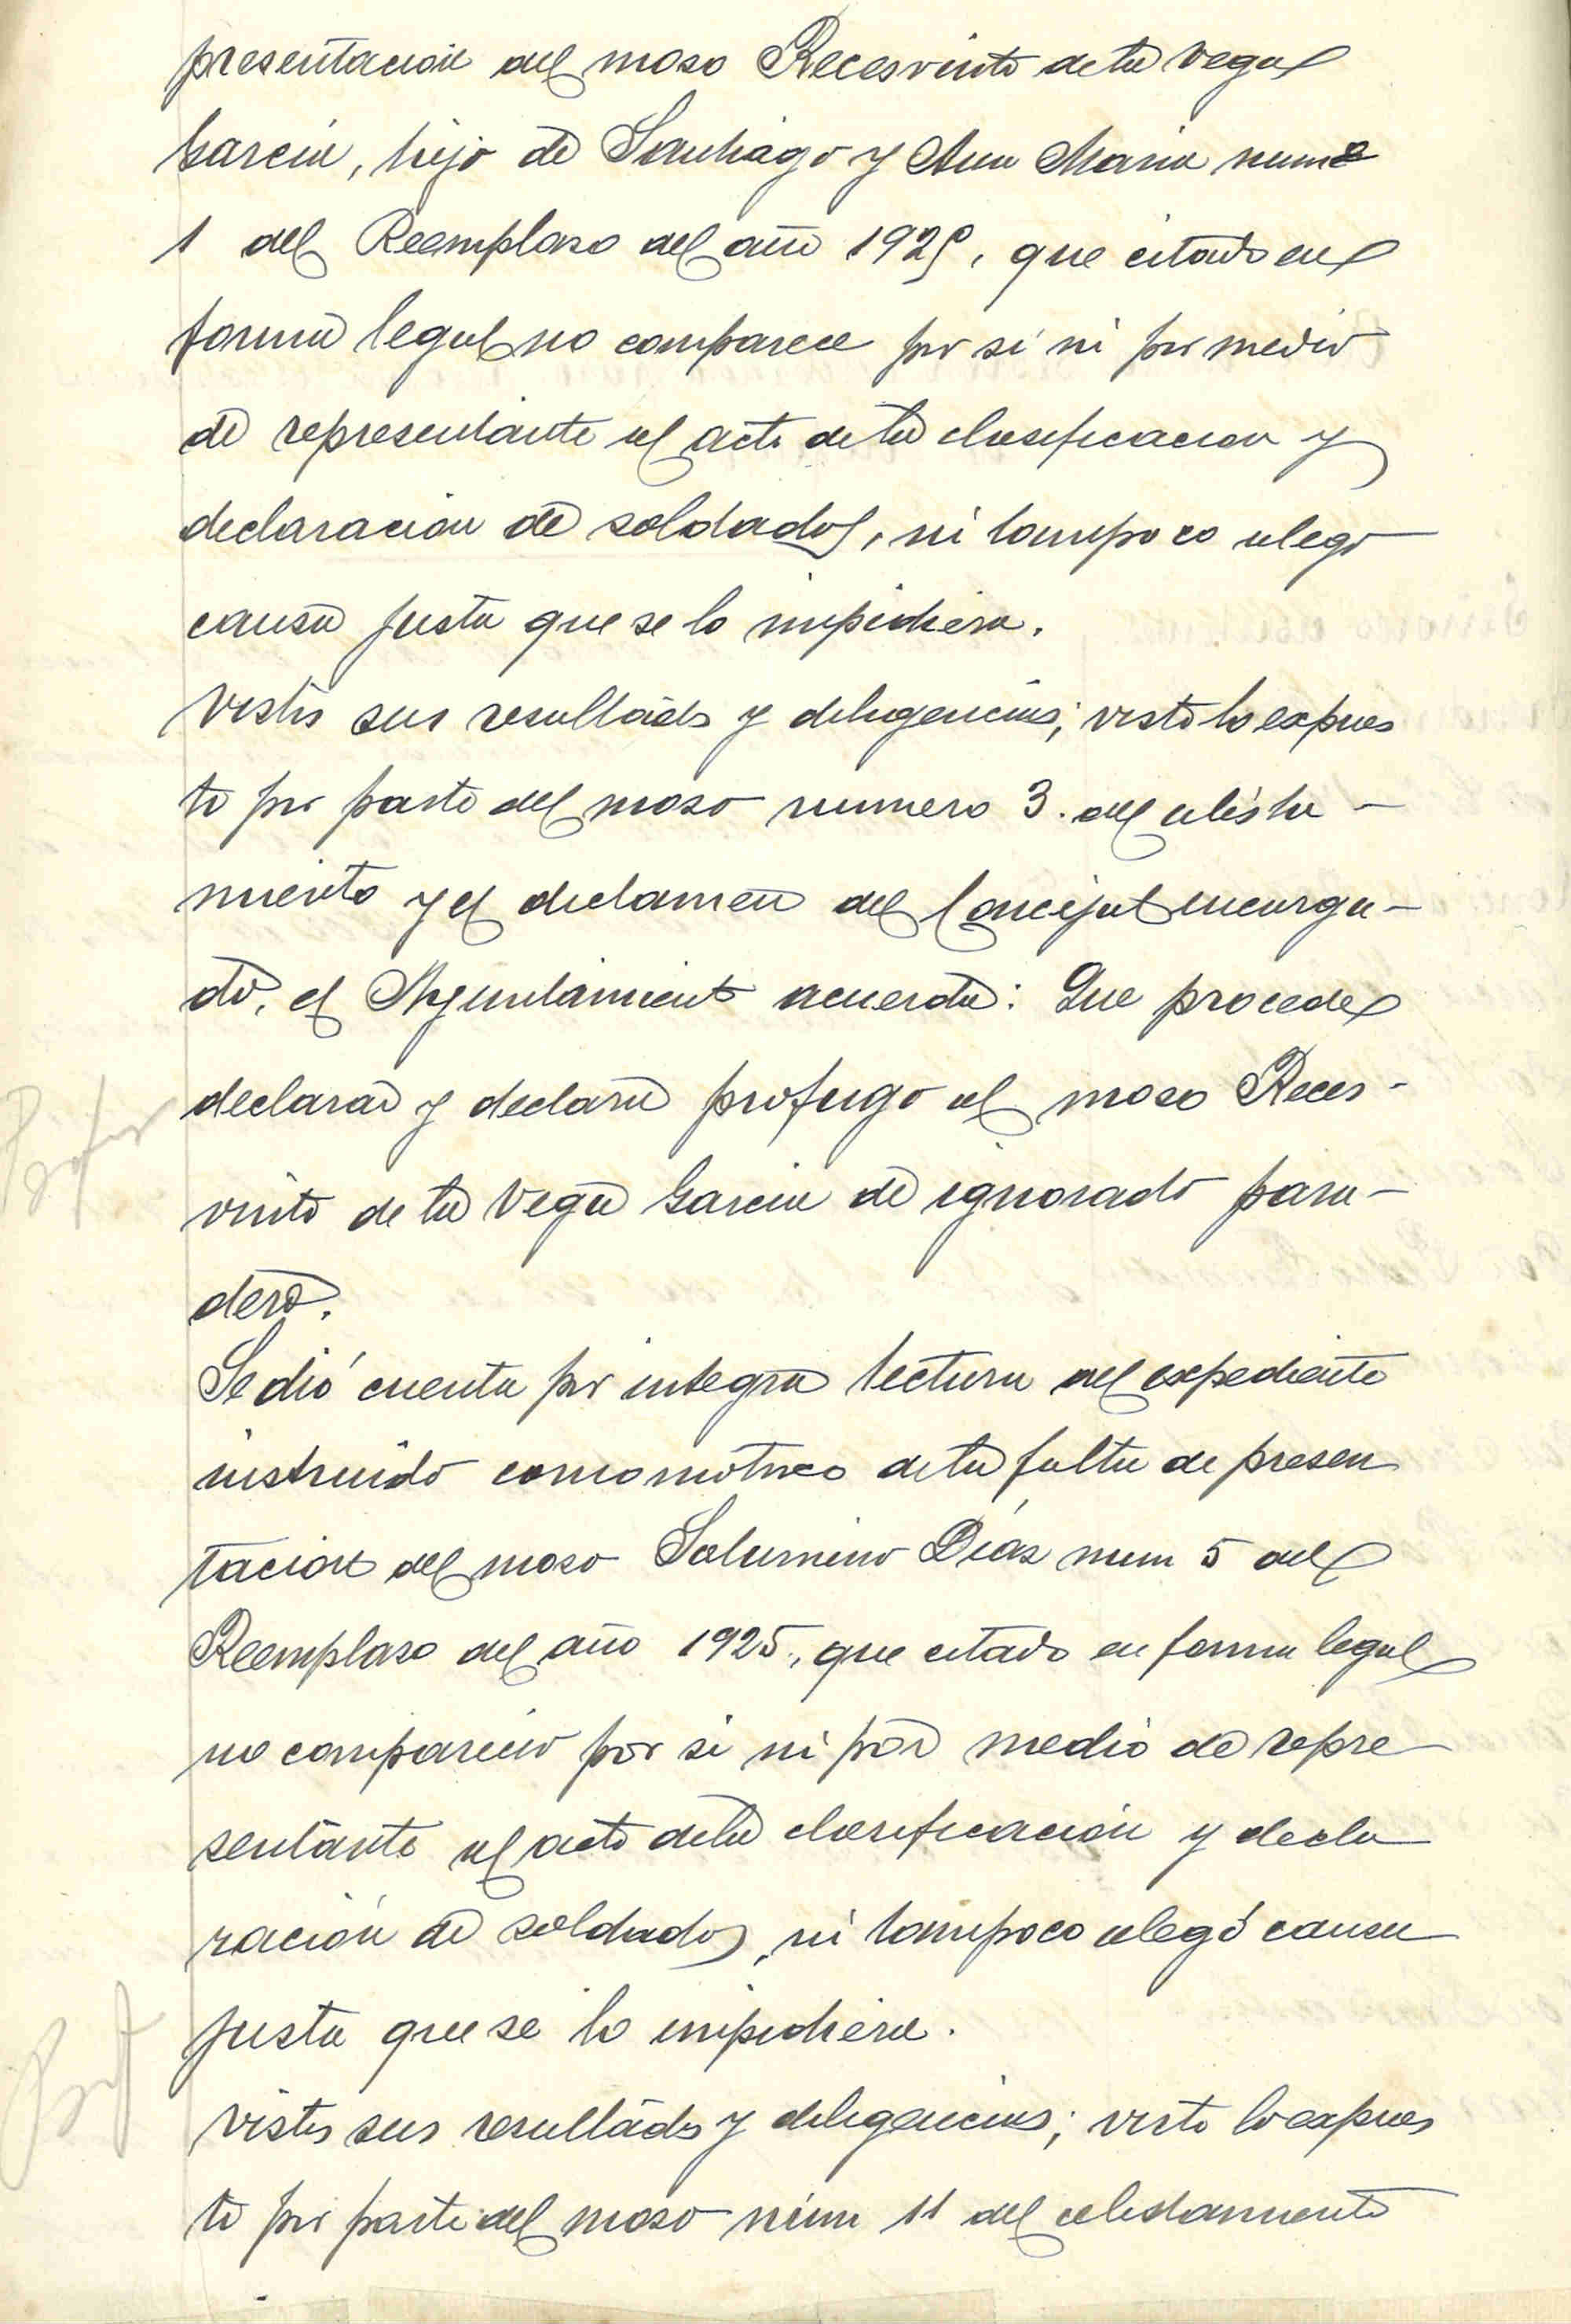 presentación del moso Recesvinto de la Vega
García, hijo de Santiago y Ana Maria num
1 del Reemplaso del año 1925, que citado en
forma legal no comparece por si ni por medio
de representante al acto de la clasificacion y
declaración de soldados, ni tampoco alego
causa justa que se lo impidiera.
Vistos sus resultados y diligencias; visto lo expues
to por parte del moso numero 3. del alista-
miento y el dictamen del Concejal encarga-
do, el Ayuntamiento acuerda: Que procede
declarar y declara profugo al moso Reces-
vinto de la Vega Garcia de ignorado para-
dero.
Se dió cuenta por integra lectura del expediente
instruido con motivo de la falta de presen
tación del moso Saturnino Díaz num 5 del
Reemplaso del año 1925, que citado en forma legal
no compareció por si ni por medio de repre
sentante al acto de la clasificación y decla
ración de soldados, ni tampoco alegó causa
justa que se lo impidiera.
Vistos sus resultados y diligencias; visto lo expues
to por parte del moso núm 11 del alistamiento